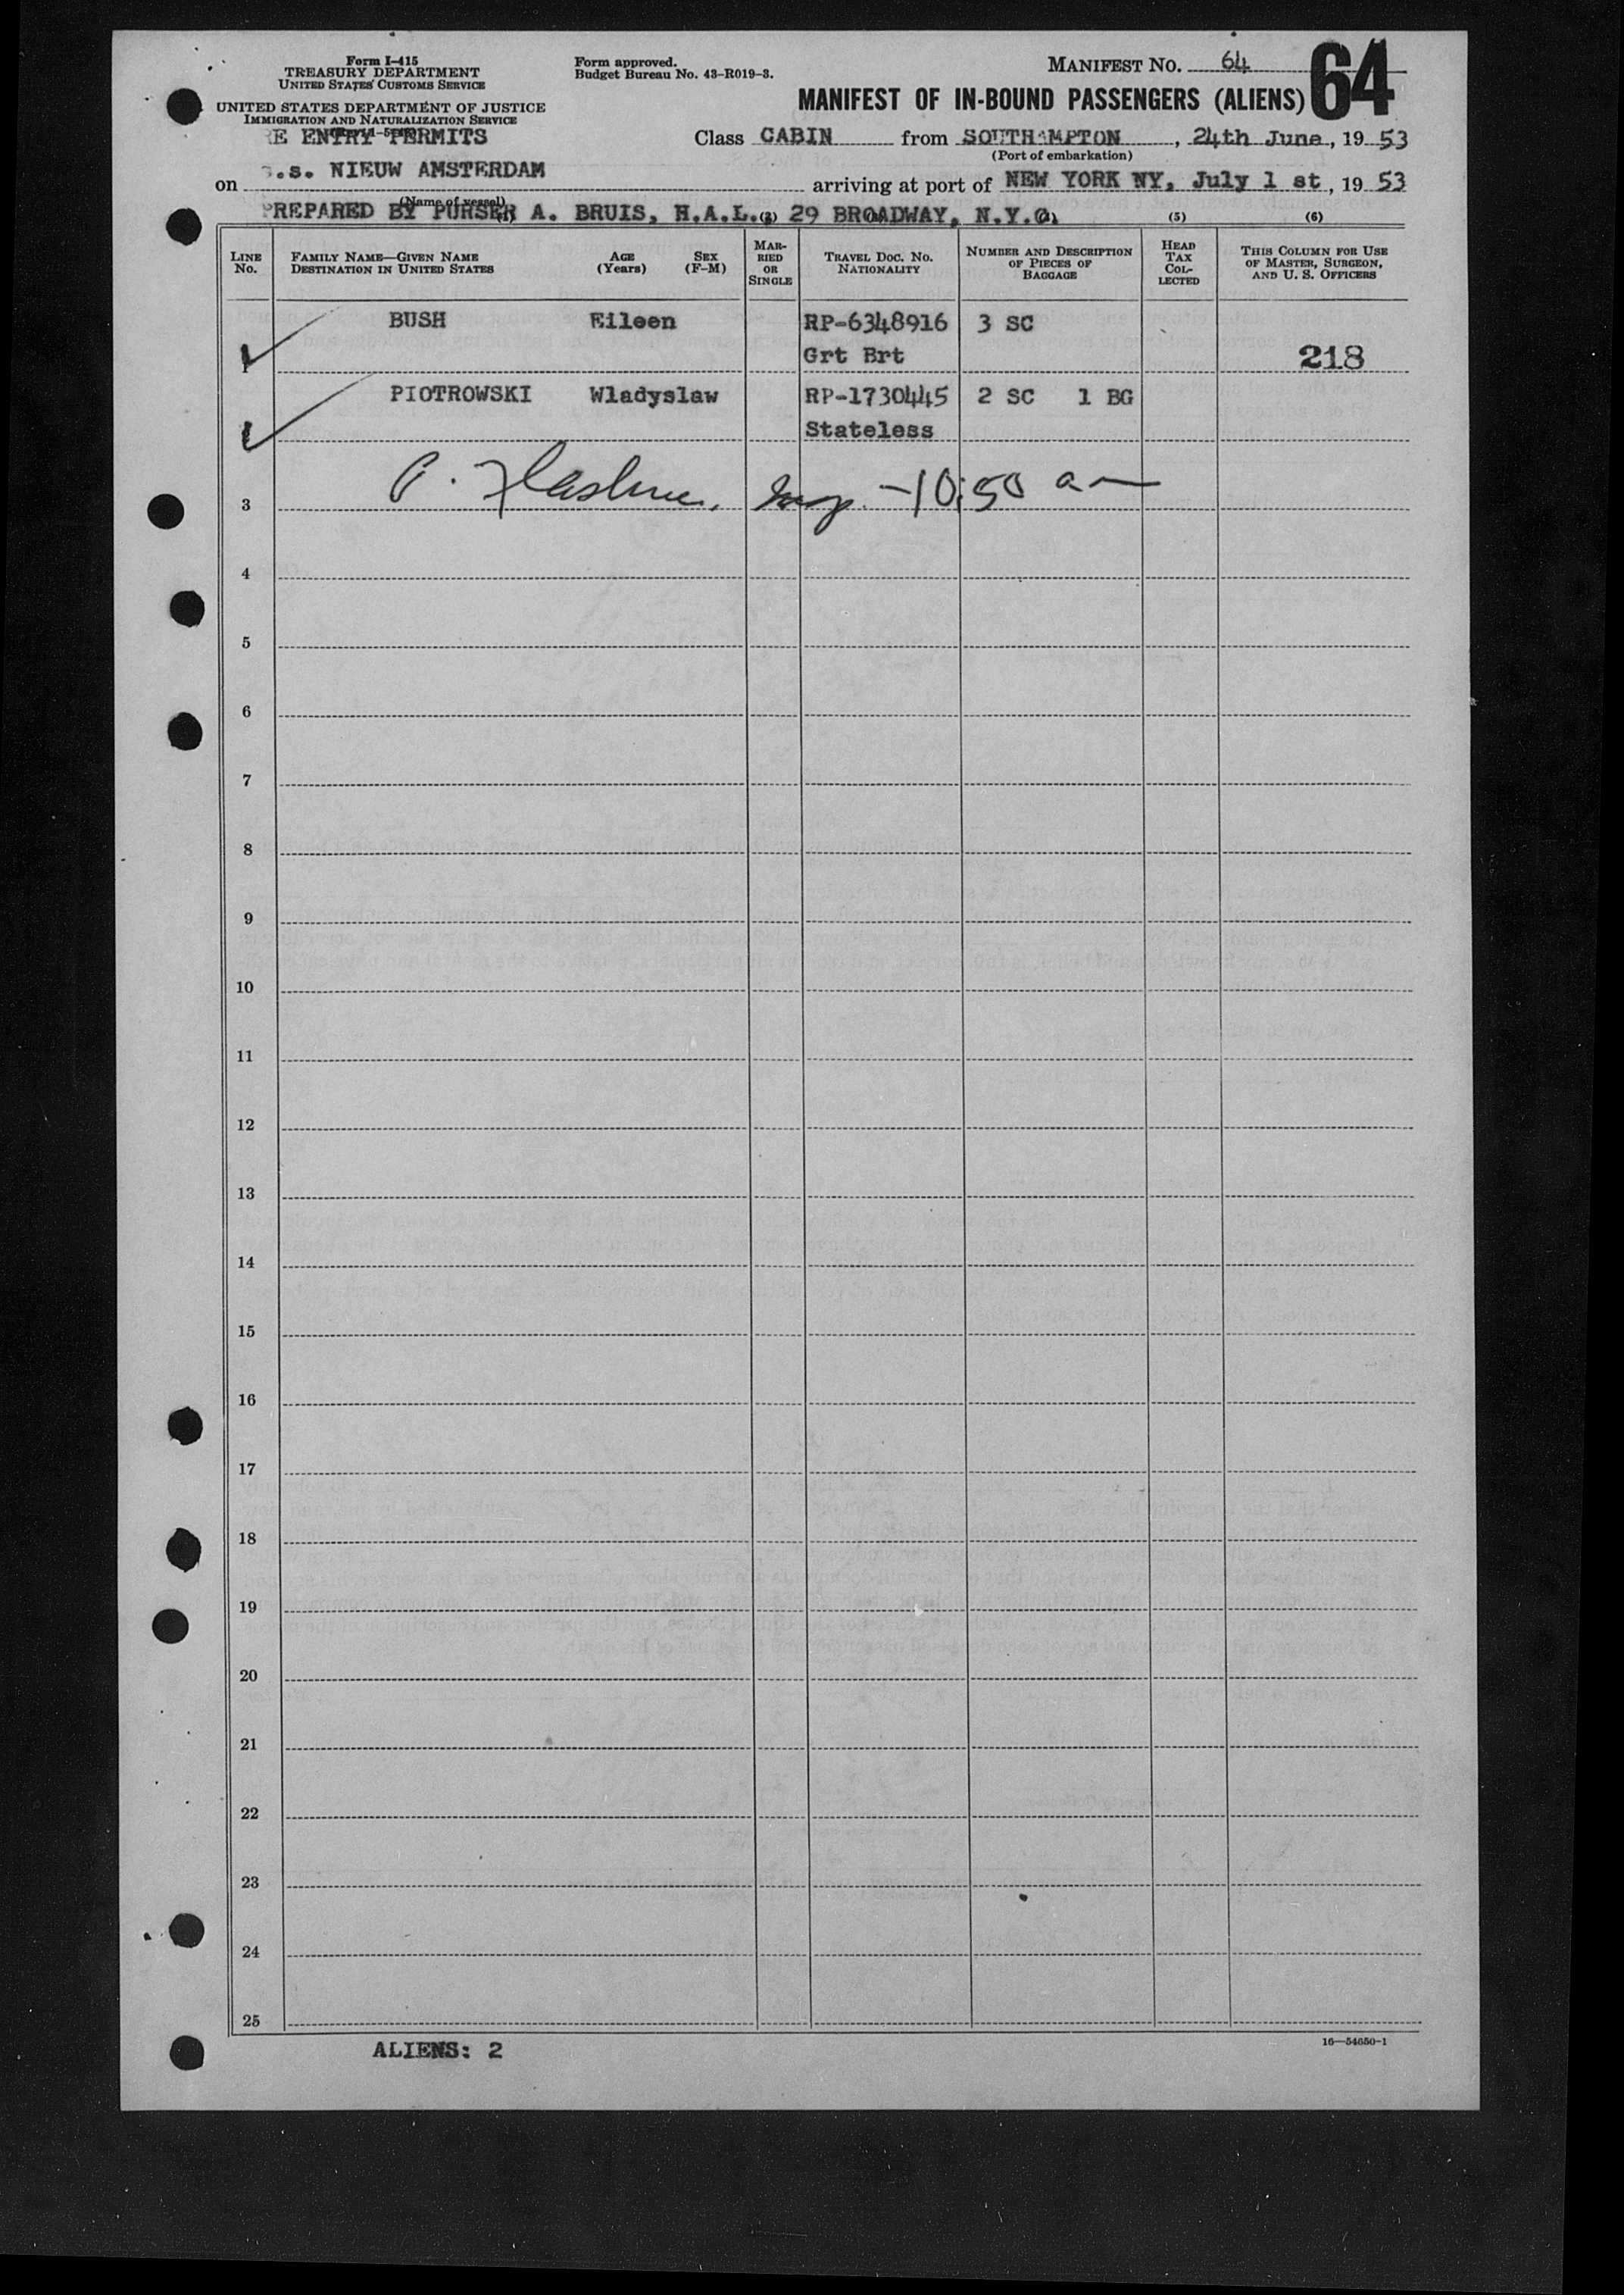 Form I-415
TREASURY DEPARTMENT
UNITED STATES CUSTOMS SERVICE
UNITED STATES DEPARTMENT OF JUSTICE
IMMIGRATION AND NATURALIZATION SERVICE
Form approved.
Budget Bureau No. 43-R019-3.
MANIFEST NO. 64
64
MANIFEST OF IN-BOUND PASSENGERS (ALIENS)
RE ENTRY PERMITS
Class CABIN from SOUTHAMPTON, 24th June, 19 53
(Port of embarkation)
on s.s. NIEUW AMSTERDAM arriving at port of NEW YORK NY, July 1 st, 19 53
(Name of vessel)
PREPARED BY PURSER A. BRUIS, H.A.L. (3) 29 BROADWAY, N.Y.C. (5) (6)
LINE NO.
FAMILY NAME—GIVEN NAME DESTINATION IN UNITED STATES
AGE (Years)
SEX (F-M)
MARRIED OR SINGLE
TRAVEL DOC. NO. NATIONALITY
NUMBER AND DESCRIPTION OF PIECES OF BAGGAGE
HEAD TAX COLLECTED
THIS COLUMN FOR USE OF MASTER, SURGEON, AND U. S. OFFICERS
BUSH Eileen RP-6348916 3 SC
Grt Brt 218
PIOTROWSKI Wladyslaw RP-1730445 2 SC 1 BG
Stateless
3 10:50 am
4
5
6
7
8
9
10
11
12
13
14
15
16
17
18
19
20
21
22
23
24
25
ALIENS: 2
16—54650-1